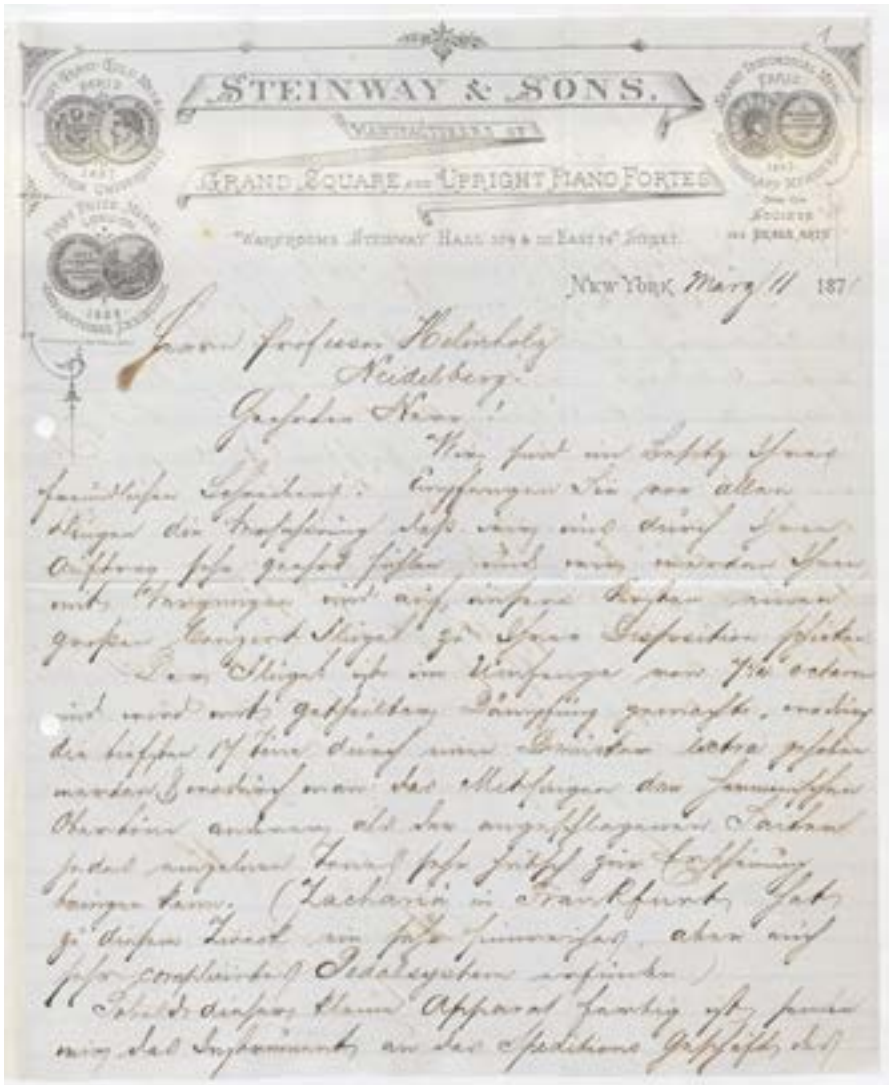 1
STEINWAY & SONS.
MANUFACTURERS OF
GRAND, SQUARE AND UPRIGHT PIANO FORTES
WAREROOMS STEINWAY HALL 109 & 111 EAST 14th STREET.
FIRST GRAND GOLD MEDAL
PARIS
1867
EXPOSITION UNIVERSELLE
FIRST PRIZE MEDAL
LONDON
1862
INTERNATIONAL EXHIBITION
GRAND TESTIMONIAL MEDAL
PARIS
1867
SOCIETE
DES BEAUX ARTS
NEW YORK März 11 1871
Herrn Professor Helmholz
Heidelberg.
Geehrter Herr!
Wir sind im Besitz Ihres
freundlichen Schreibens: Empfangen Sie vor allen
Dingen die Versicherung daß wir uns durch Ihren
Auftrag sehr geehrt fühlen und wir werden Ihnen
mit Vergnügen und auf unsere Kosten einen
großen Konzert Flügel zu Ihrer Disposition stellen
Der Flügel ist im Umfange von 7⅓ octaven
und wird mit getheilter Dämpfung gemacht, wodurch
die tiefsten 17 Töne durch einen Drücker extra gehoben
werden & wodurch man das Mitklingen der harmonischen
Obertöne anderer als der angeschlagenen Saiten
jedes einzelnen Tones sehr hübsch zur Erscheinung
bringen kann. (Zachariä in Frankfurt hat
zu diesem Zweck ein sehr sinnreiches, aber auch
sehr complicirtes Pedalsystem erfunden.)
Sobald dieser kleine Apparat fertig ist, senden
wir das Instrument an das Speditions Geschäft des